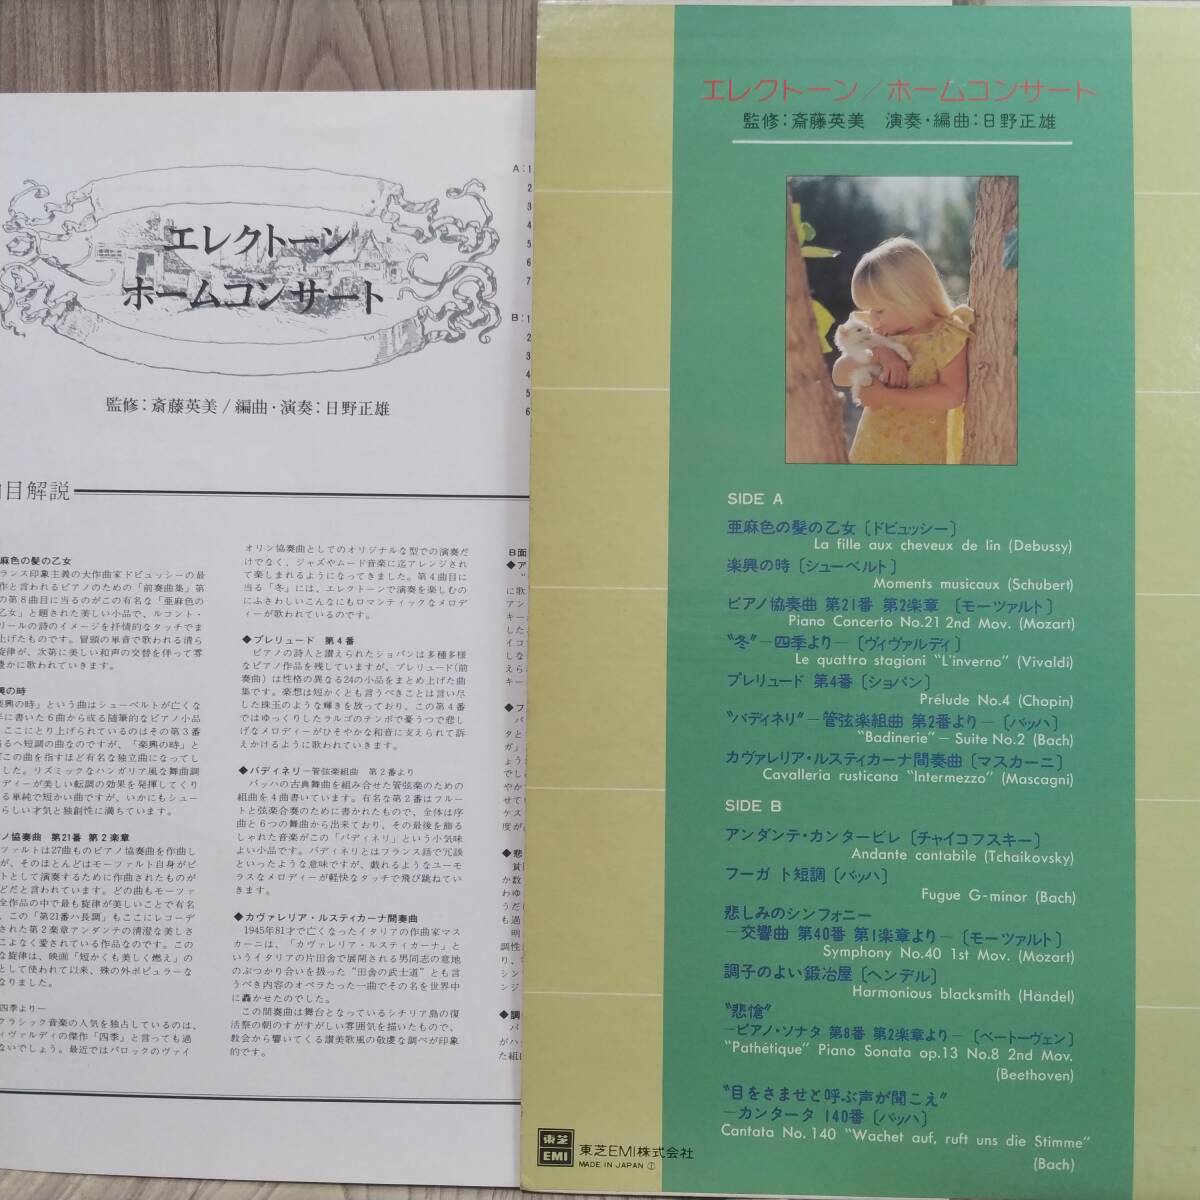 エレクトーン
ホームコンサート
監修:斎藤英美/編曲・演奏:日野正雄
A:1
2
3
4
5
6
7
B:1
2
3
4
5
6
目解説
麻色の髪の乙女
ランス印象主義の大作曲家ドビュッシーの最
作と言われるピアノのための「前奏曲集」第
の第8曲目に当るのがこの有名な「亜麻色の
乙女」と題された美しい小品で、ルコント・
リールの詩のイメージを抒情的なタッチでま
上げたものです。冒頭の単音で歌われる清ら
旋律が、次第に美しい和声の交替を伴って雰
豊かに歌われていきます。
興の時
楽興の時」という曲はシューベルトが亡くな
年に書いた6曲から成る随筆的なピアノ小品
ここにとり上げられているのはその第3番
るヘ短調の曲なのですが、「楽興の時」と
この曲を指すほど有名な独立曲になってし
した。リズミックなハンガリア風な舞曲調
ディーが美しい転調の効果を発揮してくり
る単純で短かい曲ですが、いかにもシュー
らしい才気と独創性に満ちています。
ノ協奏曲 第21番 第2楽章
ツァルトは27曲ものピアノ協奏曲を作曲し
が、そのほとんどはモーツァルト自身がピ
トとして演奏するために作曲されたものが
どだと言われています。どの曲もモーツァ
全作品の中で最も旋律が美しいことで有名
、この「第21番ハ長調」もここにレコーデ
された第2楽章アンダンテの清澄な美しさ
こよなく愛されている作品なのです。この
な旋律は、映画「短かくも美しく燃え」の
として使われて以来、殊の外ポピュラーな
なりました。
四季より―
クラシック音楽の人気を独占しているのは、
ィヴァルディの傑作「四季」と言っても過
ないでしょう。最近ではバロックのヴァイ
オリン協奏曲としてのオリジナルな型での演奏だ
けでなく、ジャズやムード音楽に迄アレンジされ
て楽しまれるようになってきました。第4曲目に
当る「冬」には、エレクトーンで演奏を楽しむのに
にふさわしいこんなにもロマンティックなメロデ
ィーが歌われているのです。
◆プレリュード 第4番
ピアノの詩人と讃えられたショパンは多種多様
なピアノ作品を残していますが、プレリュード(前
奏曲)は性格の異なる24の小品をまとめ上げた曲
集です。楽想は短かくとも言うべきことは言い尽
した珠玉のような輝きを放っており、この第4番
ではゆっくりしたラルゴのテンポで憂うつで悲し
げなメロディーがひそやかな和音に支えられて訴
えかけるように歌われていきます。
◆バディネリー管弦楽組曲 第2番より
バッハの古典舞曲を組み合せた管弦楽のための
組曲を4曲書いています。有名な第2番はフルー
トと弦楽合奏のために書かれたもので、全体は序
曲と6つの舞曲から出来ており、その最後を飾る
しゃれた音楽がこの「バディネリ」という小気味
よい小品です。バディネリとはフランス語で冗談
といったような意味ですが、戯れるようなユーモ
ラスなメロディーが軽快なタッチで飛び跳ねてい
きます。
◆カヴァレリア・ルスティカーナ間奏曲
1945年81才で亡くなったイタリアの作曲家マス
カーニは、「カヴァレリア・ルスティカーナ」と
いうイタリアの片田舎で展開される男同志の意地
のぶつかり合いを扱った“田舎の武士道”とも言
うべき内容のオペラたった一曲でその名を世界中
に轟かせたのでした。
この間奏曲は舞台となっているシチリア島の復
活祭の朝のすがすがしい雰囲気を描いたもので、
教会から響いてくる讃美歌風の敬虔な調べが印象
的です。
B面
エレクトーン/ホームコンサート
監修:斎藤英美 演奏・編曲:日野正雄
SIDE A
亜麻色の髪の乙女〔ドビュッシー〕
La fille aux cheveux de lin (Debussy)
楽興の時〔シューベルト〕
Moments musicaux (Schubert)
ピアノ協奏曲 第21番 第2楽章 〔モーツァルト〕
Piano Concerto No.21 2nd Mov. (Mozart)
“冬”―四季より―〔ヴィヴァルディ〕
Le quattro stagioni “L'inverno” (Vivaldi)
プレリュード 第4番〔ショパン〕
Prélude No.4 (Chopin)
“バディネリ”―管弦楽組曲 第2番より―〔バッハ〕
“Badinerie”― Suite No.2 (Bach)
カヴァレリア・ルスティカーナ間奏曲〔マスカーニ〕
Cavalleria rusticana “Intermezzo” (Mascagni)
SIDE B
アンダンテ・カンタービレ〔チャイコフスキー〕
Andante cantabile (Tchaikovsky)
フーガ ト短調〔バッハ〕
Fugue G-minor (Bach)
悲しみのシンフォニー
―交響曲 第40番 第1楽章より―〔モーツァルト〕
Symphony No.40 1st Mov. (Mozart)
調子のよい鍛冶屋〔ヘンデル〕
Harmonious blacksmith (Händel)
“悲愴”
―ピアノ・ソナタ 第8番 第2楽章より―〔ベートーヴェン〕
“Pathétique” Piano Sonata op.13 No.8 2nd Mov.
(Beethoven)
“目をさませと呼ぶ声が聞こえ”
―カンタータ 140番〔バッハ〕
Cantata No. 140 “Wachet auf, ruft uns die Stimme”
(Bach)
東芝
EMI
東芝EMI株式会社
MADE IN JAPAN Ⓘ